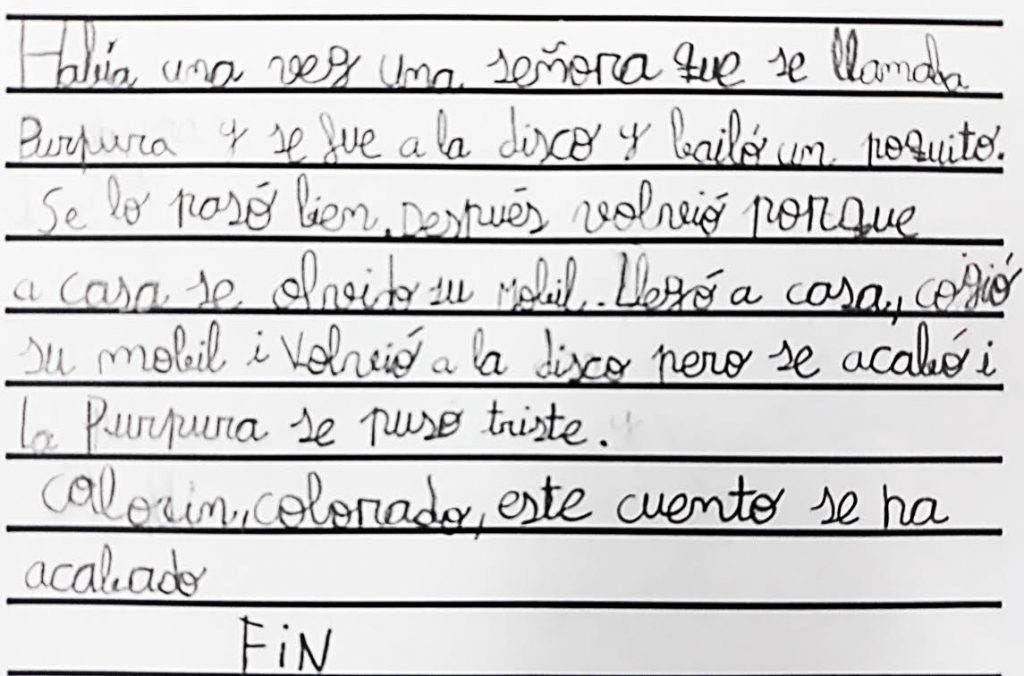 Había una vez una señora que se llamaba
Purpura y se fue a la disco y bailó un poquito.
Se lo pasó bien. Después volvió porque
a casa se olvido su mobil. Llegó a casa, cogió
su mobil i volvió a la disco pero se acabó i
la Purpura se puso triste.
Calorin, colorado, este cuento se ha
acabado
FiN